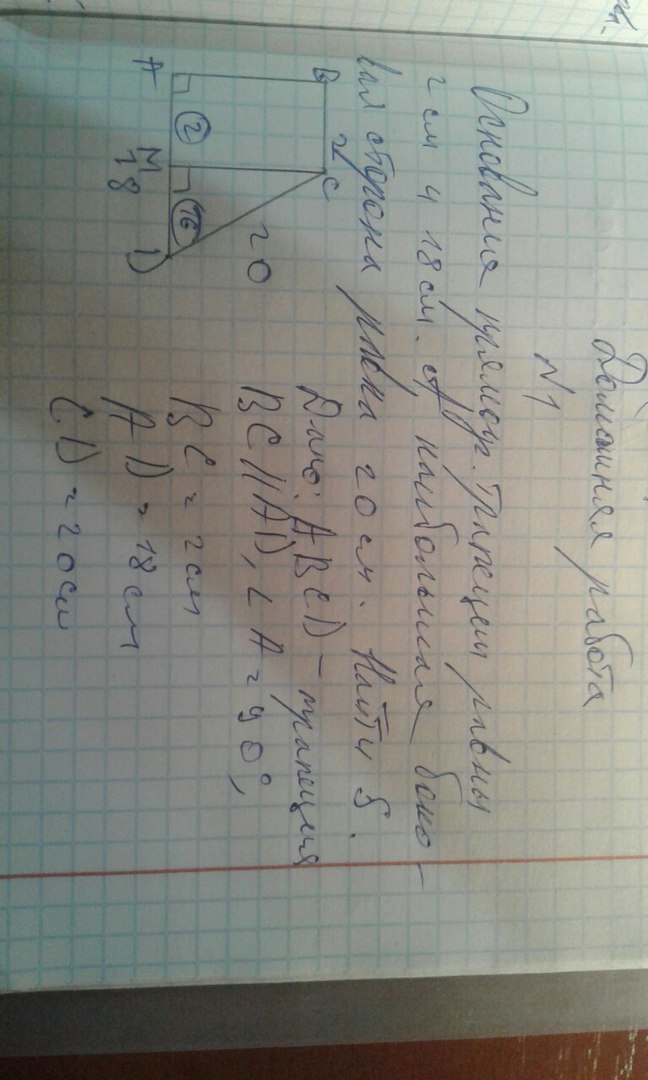 Домашняя работа
N1
Основания прямоуг. трапеции равны
2 см и 18 см, а наибольшая боко-
вая сторона равна 20 см. Найти S.
B 2 C
20
2 16
A M D
18
Дано: ABCD – трапеция
BC || AD, ∠A = 90°,
BC = 2 см
AD = 18 см
CD = 20 см